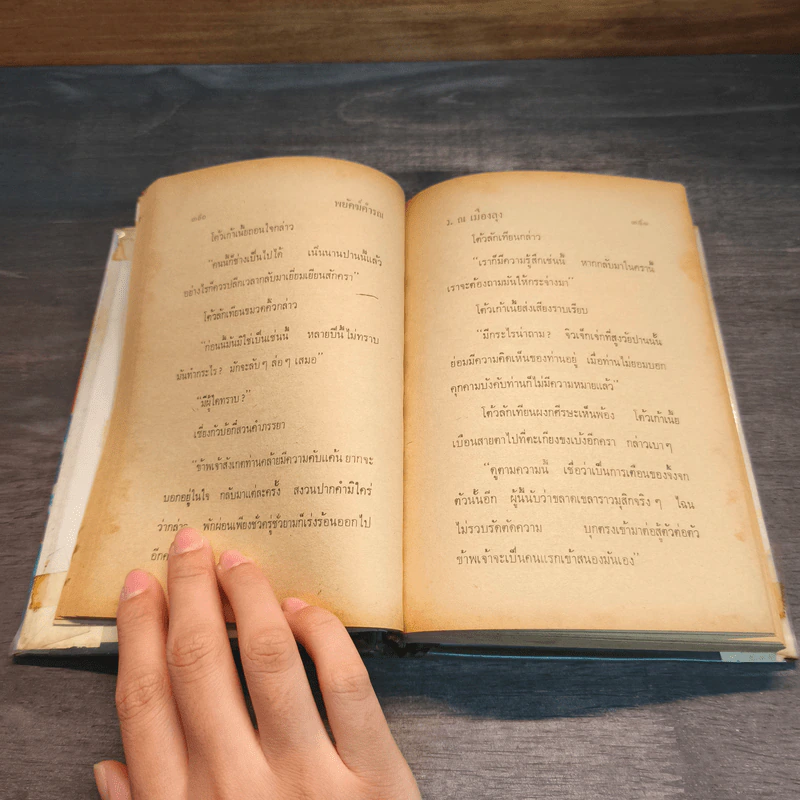 พยัคฆ์คำรณ
โต้วเก้าเนี้ยถอนใจกล่าว
“คนนี้ก็ช่างเป็นไปได้ เนิ่นนานปานนี้แล้ว
อย่างไรก็ควรปลีกเวลากลับมาเยี่ยมเยียนสักครา”
โต้วลักเทียนขมวดคิ้วกล่าว
“ก่อนนี้มันมิใช่เป็นเช่นนี้ หลายปีนี้ไม่ทราบ
มันทำกระไร? มักจะลับๆ ล่อๆ เสมอ”
“มีผู้ใดทราบ?”
เซี่ยงกัวบ้อกี่สวนคำภรรยา
“ข้าพเจ้าสังเกตท่านคล้ายมีความคับแค้น ยากจะ
บอกอยู่ในใจ กลับมาแต่ละครั้ง สงวนปากคำมิใคร่
ว่ากล่าว พักผ่อนเพียงชั่วครู่ชั่วยามก็เร่งร้อนออกไป
๖. ณ เมืองลุง
โต้วลักเทียนกล่าว
“เราก็มีความรู้สึกเช่นนี้ หากกลับมาในครานี้
เราจะต้องถามมันให้กระจ่างมา”
โต้วเก้าเนี้ยส่งเสียงราบเรียบ
“มีกระไรน่าถาม? จิวเจ็กเจ่กที่สูงวัยปานนั้น
ย่อมมีความคิดเห็นของท่านอยู่ เมื่อท่านไม่ยอมบอก
คุกคามบังคับท่านก็ไม่มีความหมายแล้ว”
โต้วลักเทียนผงกศีรษะเห็นพ้อง โต้วเก้าเนี้ย
เบือนสายตาไปที่ตะเกียงของเบ้งอีกครา กล่าวเบาๆ
“ดูตามความนี้ เชื่อว่าเป็นการเตือนของจิ้งจก
ตัวนั้นอีก ผู้นี้นับว่าขลาดเขลาราวมุสิกจริงๆ ไฉน
ไม่รวบรัดตัดความ บุกตรงเข้ามาต่อสู้ตัวต่อตัว
ข้าพเจ้าจะเป็นคนแรกเข้าสนองมันเอง”